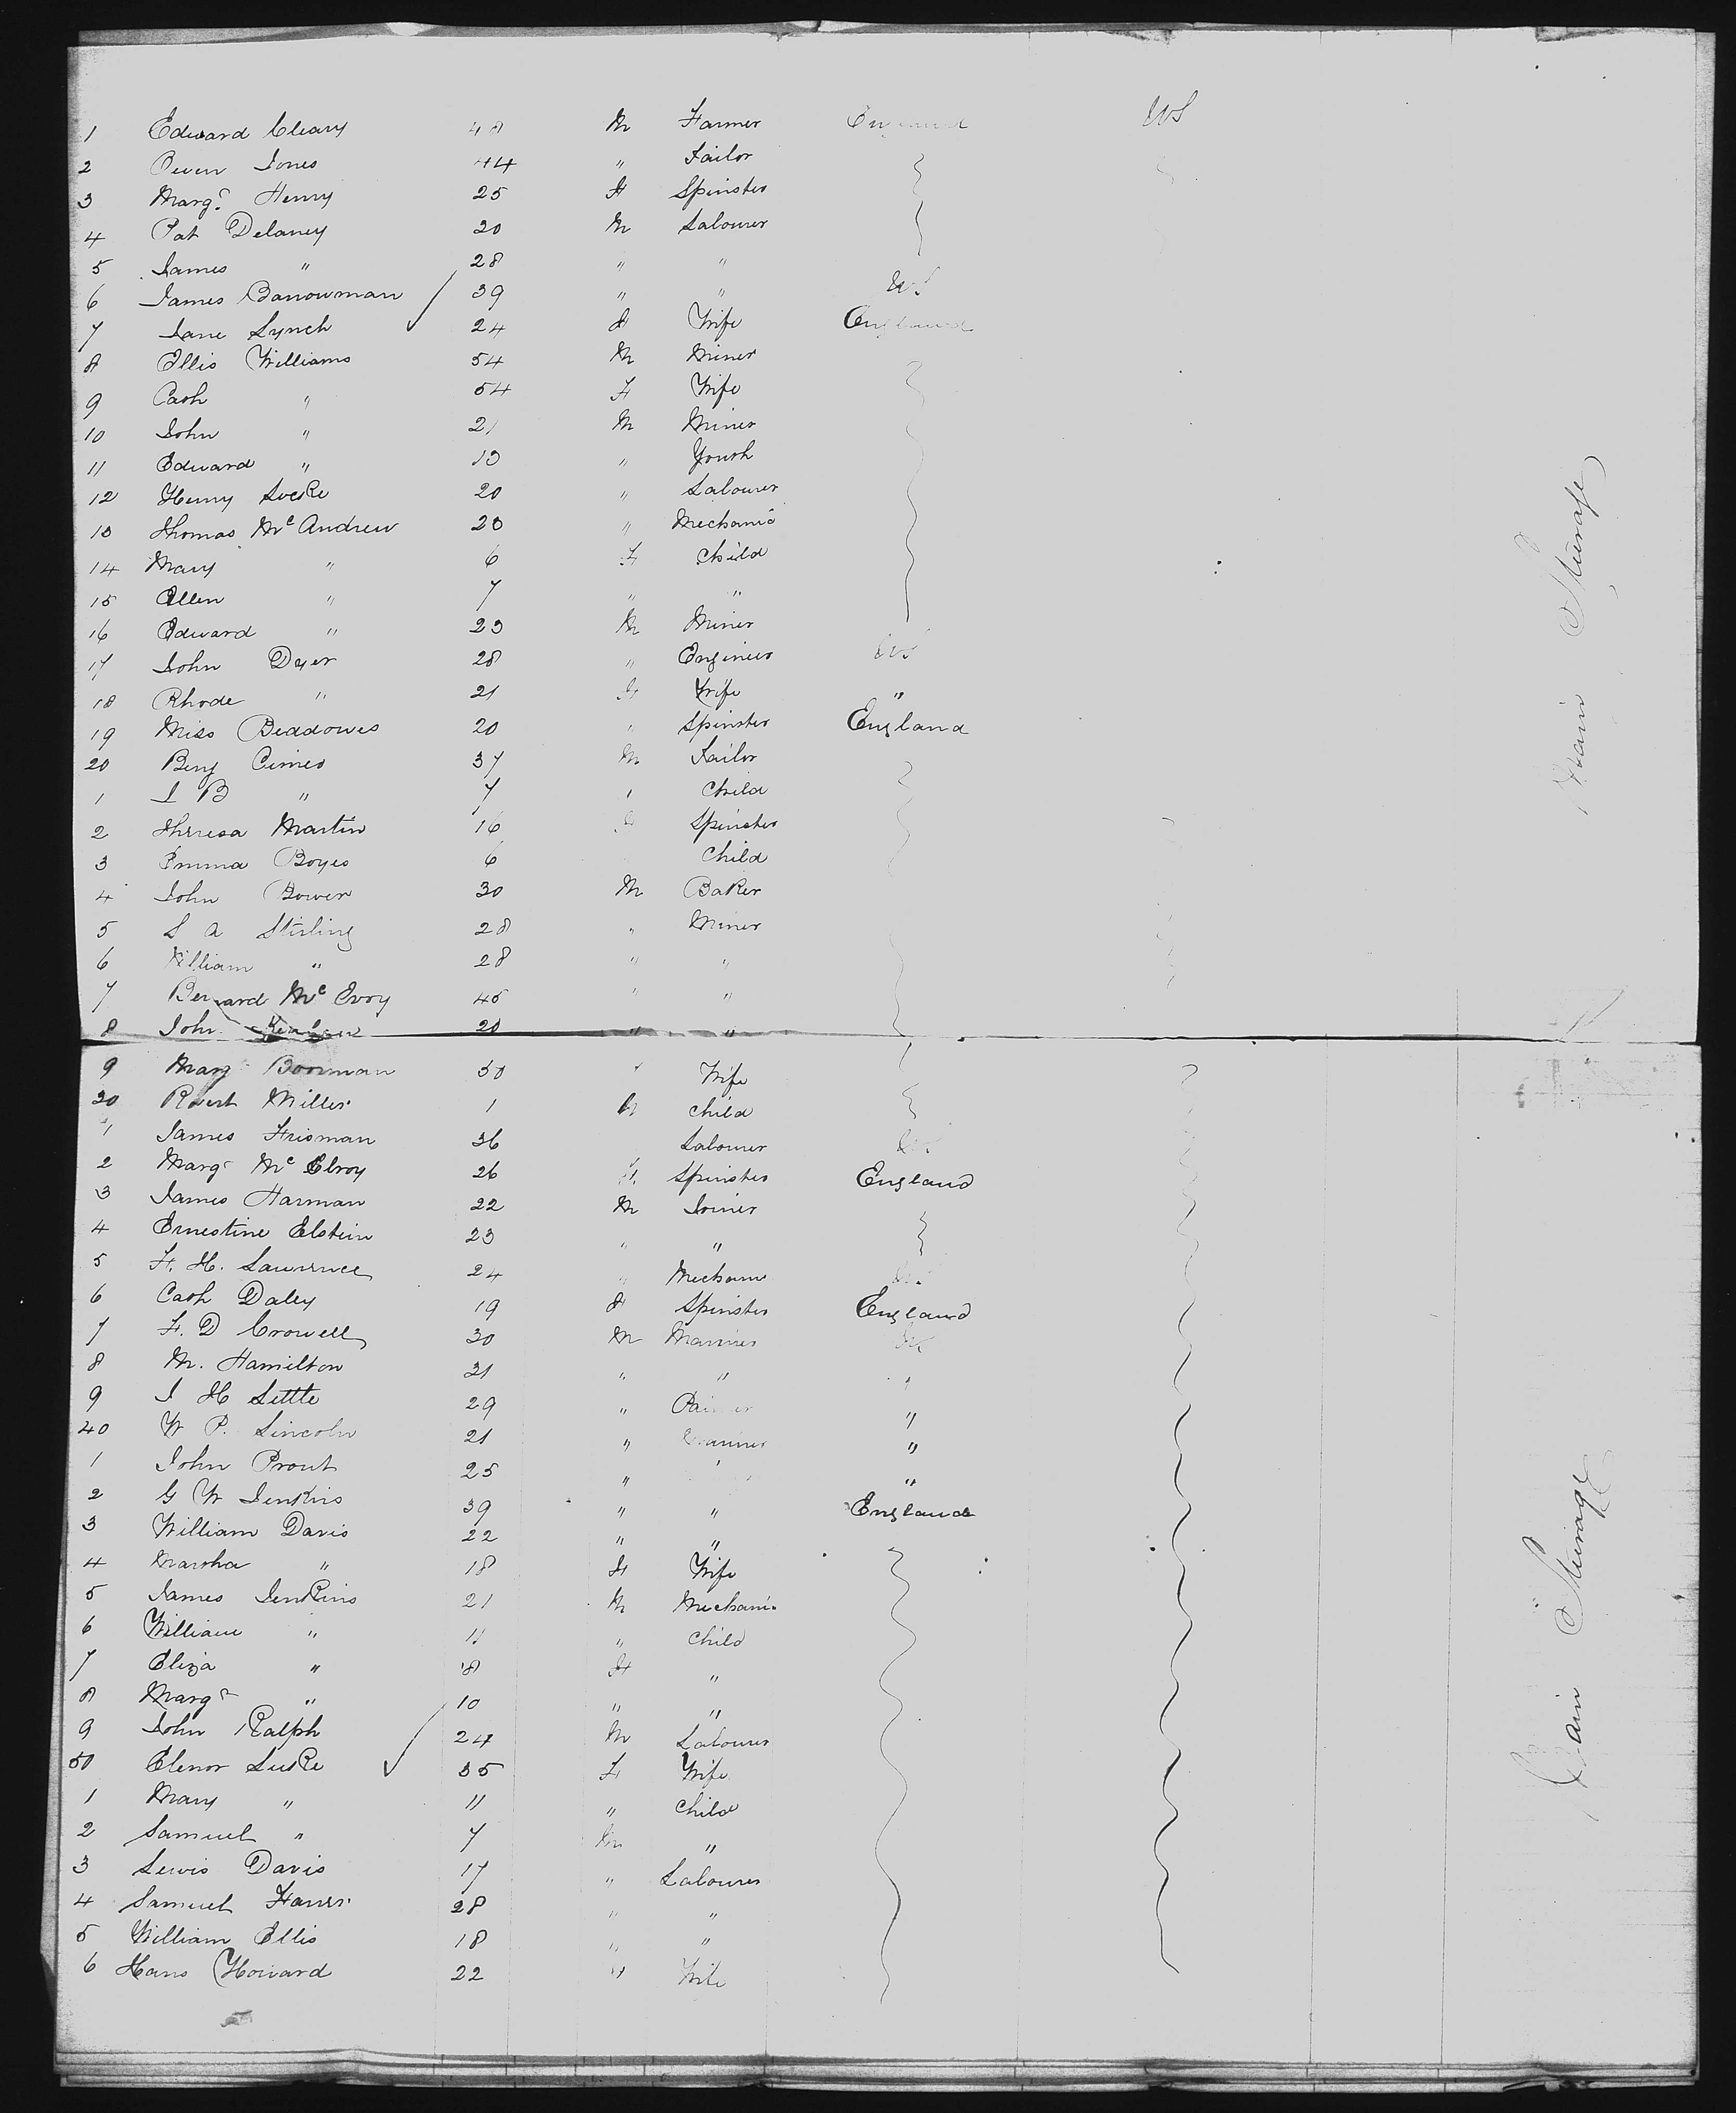 1 Edward Cleary 48 M Farmer England US
2 Owen Jones 44 " Tailor
3 Margt Henry 25 F Spinster
4 Pat Delaney 20 M Labourer
5 James " 28 " "
6 James Barrowman 39 " " US
7 Jane Lynch 24 F Wife England
8 Ellis Williams 54 M Miner
9 Cath " 54 F Wife
10 John " 21 M Miner
11 Edward " 13 " Youth
12 Henry Locke 20 " Labourer
13 Thomas McAndrew 23 " Mechanic
14 Mary " 6 F Child
15 Ellen " 7 " "
16 Edward " 23 M Miner
17 John Dyer 28 " Engineer US
18 Rhode " 21 F Wife "
19 Miss Beddowes 20 " Spinster England
20 Benj 37 M Tailor
1 J B " 7 " Child
2 Theresa Martin 16 F Spinster
3 Emma Boyes 6 Child
4 John Bower 30 M Baker
5 S A Stirling 28 " Miner
6 William " 28 " "
7 Bernard McEvoy 45 " "
8 John 20 " "
9 Marg Borrman 30 " Wife
30 Robert Miller 1 M Child
1 James Frisman 36 Labourer US
2 Margt McElroy 26 F Spinster England
3 James Harman 22 M Joiner
4 Ernestine Elstein 23 " "
5 F. H. Lawrence 24 " Mechanic US
6 Cath Daley 19 F Spinster England
7 F. D Crowell 30 M Mariner US
8 M. Hamilton 31 " " "
9 J H Settle 29 " "
40 W P. Lincoln 21 " Mariner "
1 John Prout 25 " "
2 G W Jenkins 39 " " England
3 William Davis 22 " "
4 Martha " 18 F Wife
5 James Jenkins 21 M Mechanic
6 William " 11 " Child
7 Eliza " 8 F "
8 Margt " 10 " "
9 John Ralph 24 M Labourer
50 Elenor Luke 35 F Wife
1 Mary " 11 " Child
2 Samuel " 7 M "
3 Lewis Davis 17 " Labourer
4 Samuel 28 " "
5 William Ellis 18 " "
6 Hans Howard 22 " Wife
Main Steerage
Main Steerage